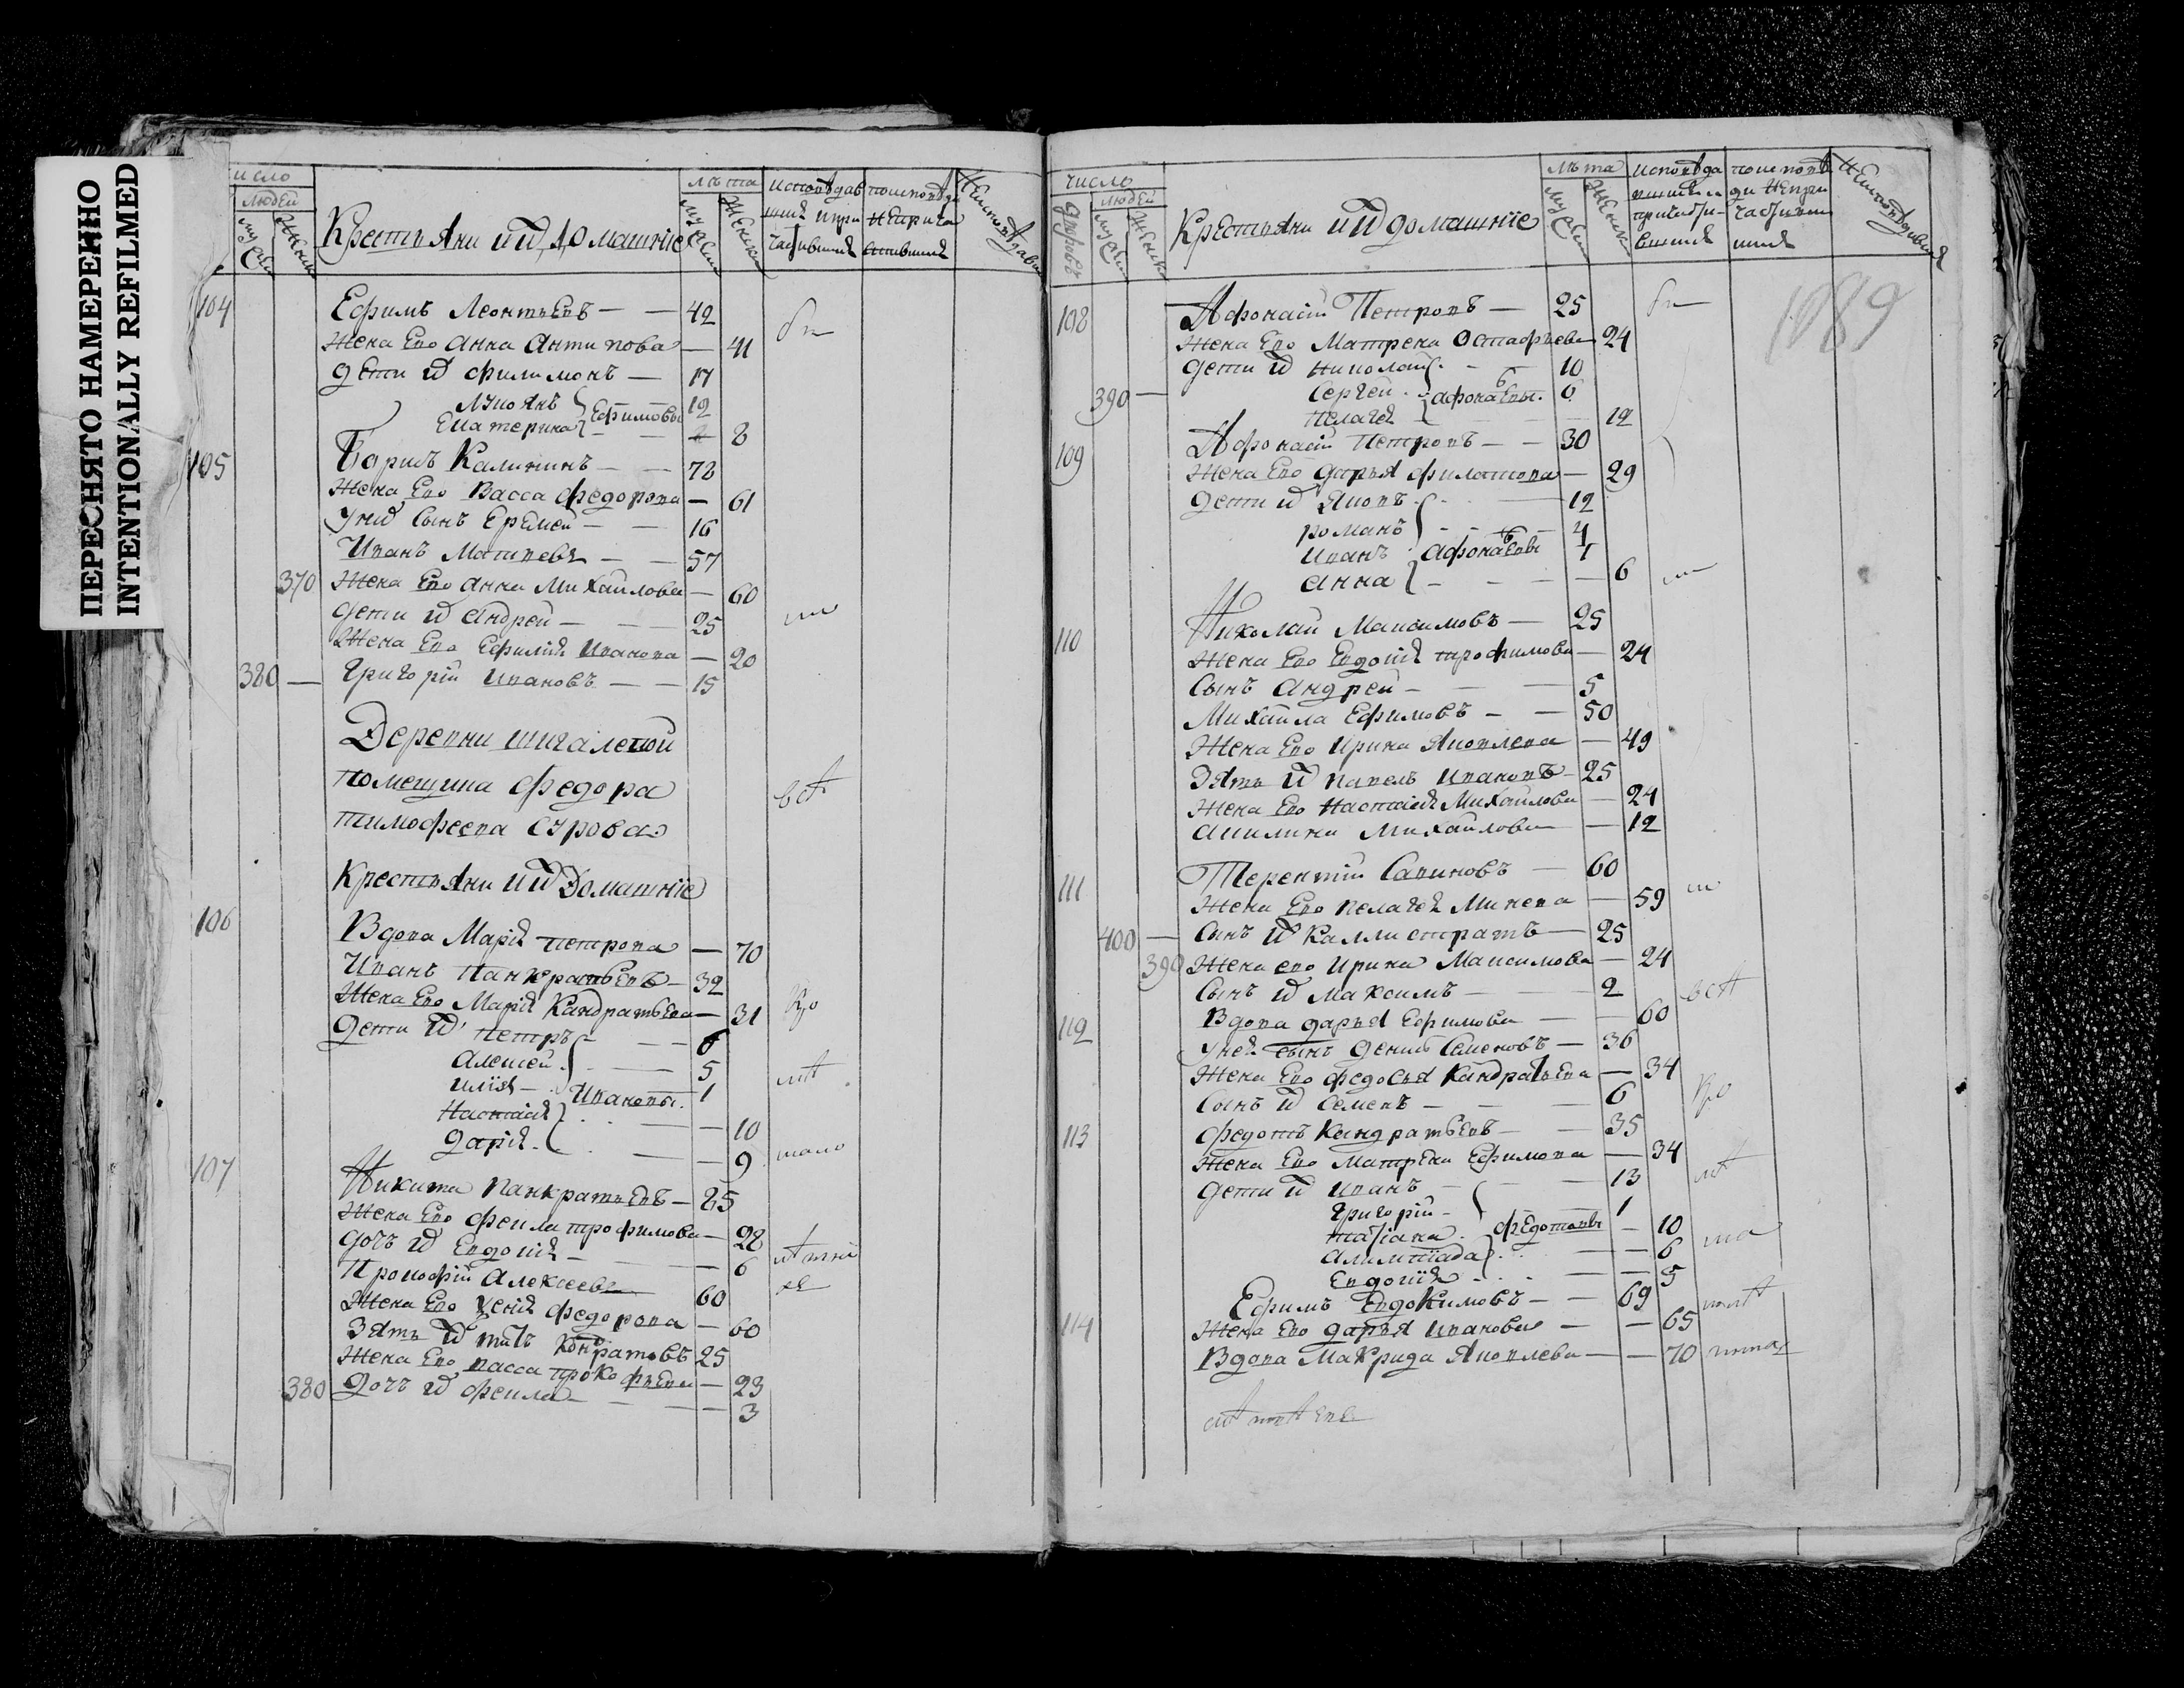 ПЕРЕСНЯТО НАМЕРЕННО
INTENTIONALLY REFILMED
число
людей
муска
женска
Крестьяни и ихъ домашние
лѣта
муска
женска
исповѣдав
шия и при
чащившия
поисповѣда
неприча
стившия
неисповѣдавш
104
Ефимъ Леонтьевъ — — 42
Жена Ево Анна Антипова — 41
Дети ихъ Филимонъ — 17
Лукоянъ } Ефимовы 12
Екатерина } — — 8
105
Борисъ Калининъ — — 72
Жена Ево Васса Федорова — 61
у них Сынъ Еремей — — 16
Иванъ Матвеевъ — — 57
370 Жена Ево Анна Михайлова — 60
Дети ихъ Андрей — — 25
Жена Ево Ефимия Иванова — 20
380 — Григорій Ивановъ — — 15
Деревни шигалской
помещика Федора
тимофеева Сурова
Крестьяни и ихъ Домашнїе
106
Вдова Марія петрова — 70
Иванъ Панкратьевъ — 32
Жена Ево Марія Кандратьева — 31
Дети ихъ петръ — — 6
Алексей — 5
илїя — Ивановы 1
Настасія — — 10
Дарія — — 9
107
Никита Панкратьевъ — 25
Жена Ево Фекла трофимова — 28
дочъ ихъ Евдокия — — 6
Прокофій Алексеевъ 60
Жена Ево Ксения Федорова — 60
Зять ихъ Кондратовъ 25
Жена Ево васса прокофьева — 23
380 дочъ их фекла — — 3
число
дворовъ
людей
муска
женска
Крестьяни и ихъ домашнїе
лѣта
муска
женска
исповѣда
вшия и
причасти-
вшия
поисповѣ
да непри
частивши
шия
неисповѣдавшия
1089
108
Афонасій Петровъ — 25
Жена Ево Матрена Остафьева 24
Дети ихъ Николай — — 10
390 — Сергей } Афонаевы 6
Пелагея — — 12
109
Афонасій Петровъ — — 30
Жена Ево Дарья филатова — 29
Дети ихъ Яковъ — 12
Романъ — — 4
Иванъ } Афонаевы 1
Анна — — — 6
110
Николай Максимовъ — 25
Жена Ево Евдокия трофимова — 24
Сынъ Андрей — — 5
Михайла Ефимовъ — — 50
Жена Ево Ирина Яковлева — 49
Зять ихъ павелъ Ивановъ — 25
Жена Ево Настасия Михайлова — 24
Акилина Михайлова — 12
111
Терентій Савиновъ — 60
Жена Ево пелагея Минева — 59
400 — Сынъ ихъ Каллистратъ — 25
390 Жена ево Ирина Максимова — 24
Сынъ ихъ Максимъ — 2
112
Вдова дарья Ефимова — — 60
у ней сынъ Денисъ Семеновъ — 36
Жена Ево федосья Кандратьева — 34
Сынъ ихъ Семенъ — — 6
113
Федотъ Кандратьевъ — — 35
Жена Ево Матрена Ефимова — 34
Дети ихъ Иванъ — — 13
Григорій — 1
татіана } Федотовы — 10
Алимпїада — — 6
Евдокія — — 5
114
Ефимъ Евдокимовъ — — 69
Жена Ево дарья Иванова — — 65
Вдова Макрида Яковлева — — 70